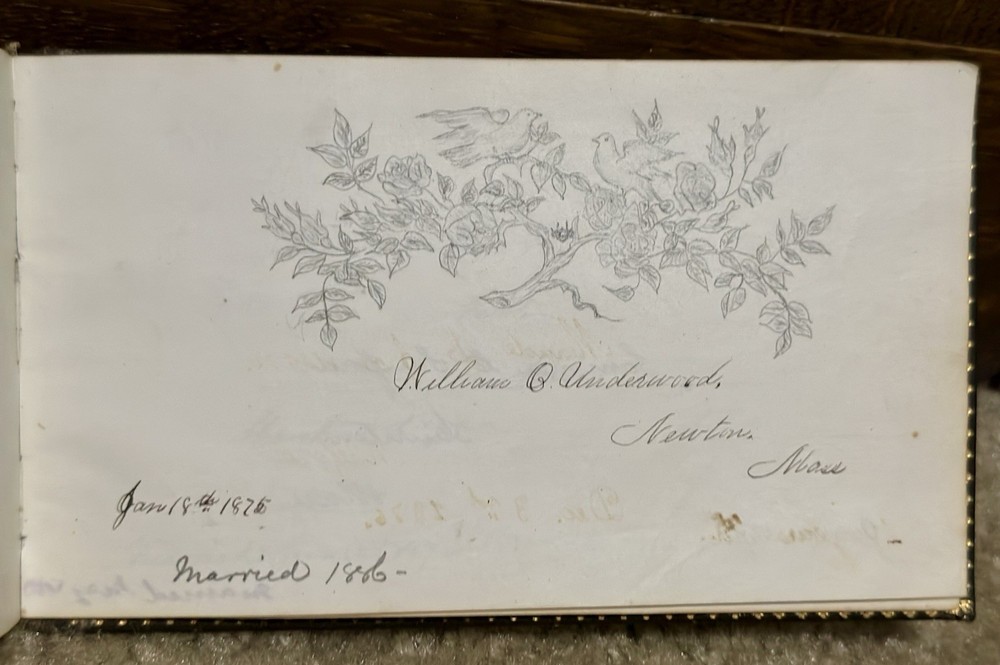 William Q. Underwood.
Newton.
Mass
Jan 18th 1875
Married 1886-
Dec. 3d, 1876.